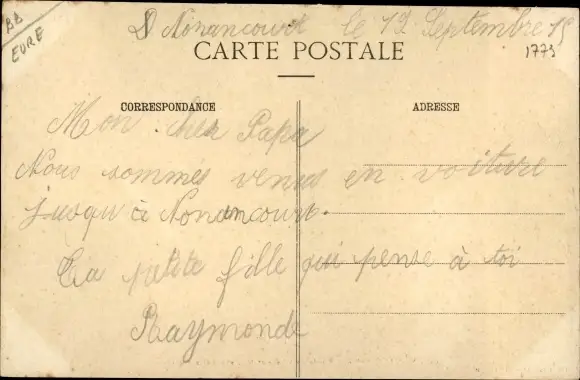 BB
EURE
Nonancourt le 12 Septembre 15
1773
CARTE POSTALE
CORRESPONDANCE
ADRESSE
Mon cher Papa
Nous sommes venus en voiture
jusqu'à Nonancourt.
Ta petite fille qui pense à toi
Raymonde